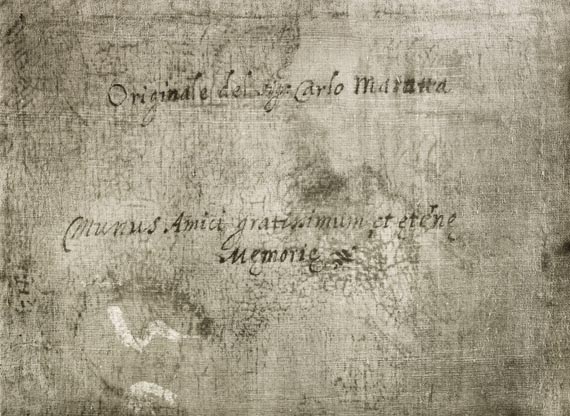 Originale del Sigr Carlo Maratta
Munus Amici gratissimum et etērne
Memorie